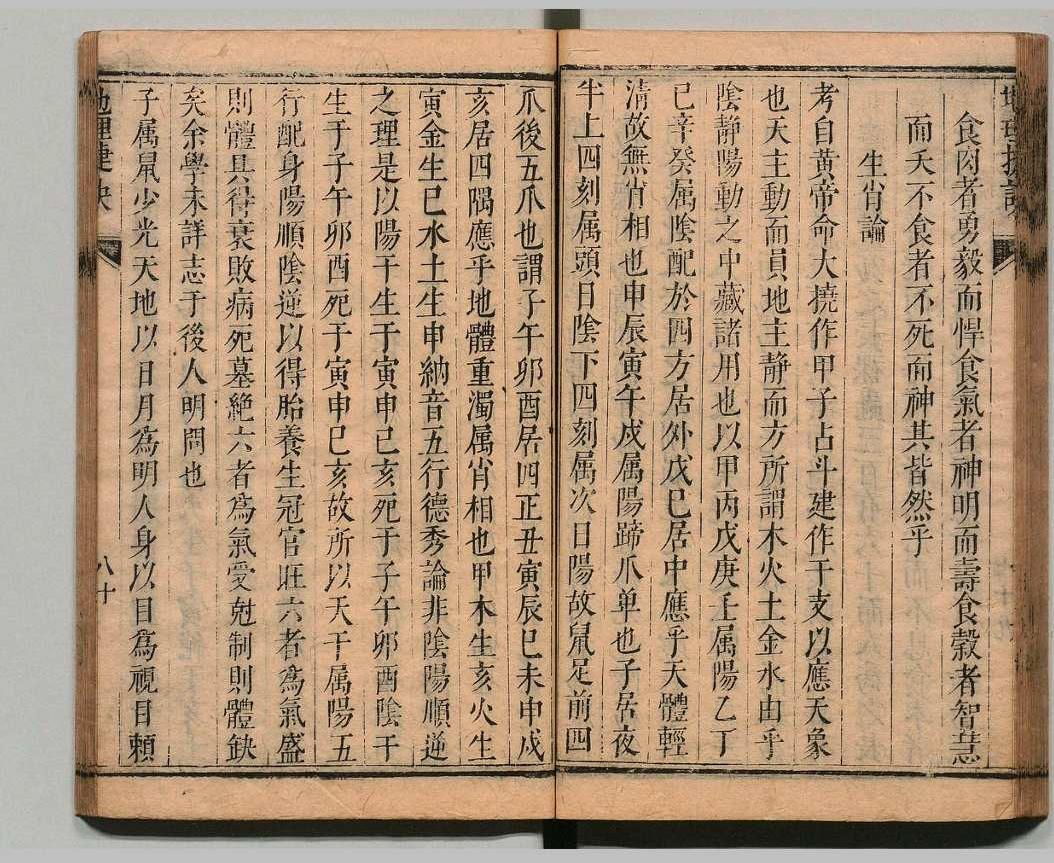 食肉者勇毅而悍食氣者神明而壽食榖者智慧
而夭不食者不死而神其皆然乎
生肖論
考自黃帝命大撓作甲子占斗建作干支以應天象
也天主動而員地主靜而方所謂木火土金水由乎
陰靜陽動之中藏諸用也以甲丙戊庚壬属陽乙丁
己辛癸属陰配於四方居外戊巳居中應乎天體輕
清故無肖相也申辰寅午戍属陽蹄爪单也子居夜
半上四刻属頭日陰下四刻属次日陽故鼠足前四
爪後五爪也謂子午卯酉居四正丑寅辰巳未申戍
亥居四隅應乎地體重濁属肖相也甲木生亥火生
寅金生巳水土生申納音五行德秀論非陰陽順逆
之理是以陽干生于寅申巳亥死于子午卯酉陰干
生于子午卯酉死于寅申巳亥故所以天干属陽五
行配身陽順陰逆以得胎養生冠官旺六者為氣盛
則體具得衰敗病死墓絶六者為氣受尅制則體缺
矣余學未詳志于後人明問也
子属鼠少光天地以日月為明人身以目為視日頼
地理捷訣
八十